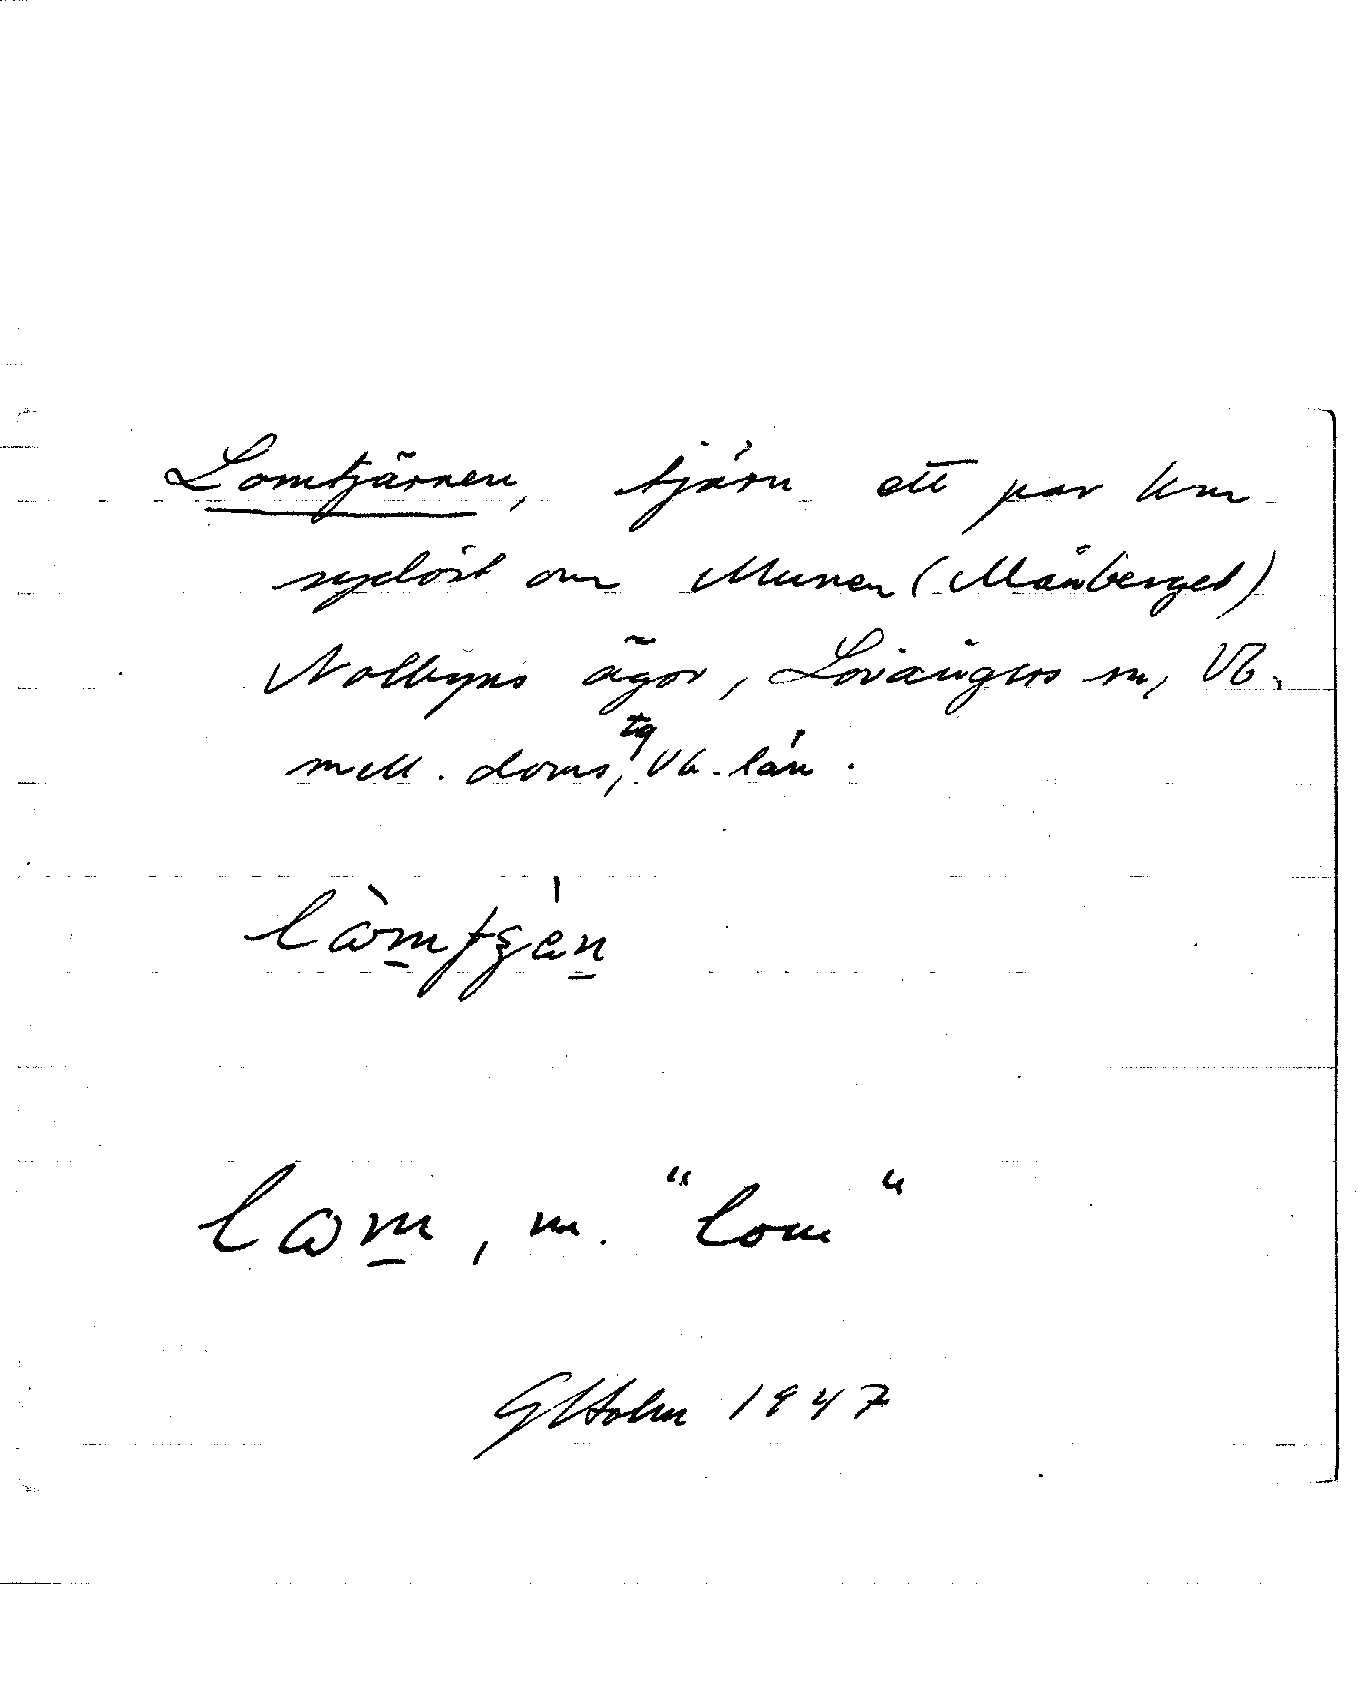 Lomtjärnen, tjärn ett par km
sydöst om Munen (Månberget)
Nolbyns ägor, Lövångers sn, Vb.
mell. doms, tg Vb. län.
làmtʃèn
lam, m. "lom"
GHolm 1947